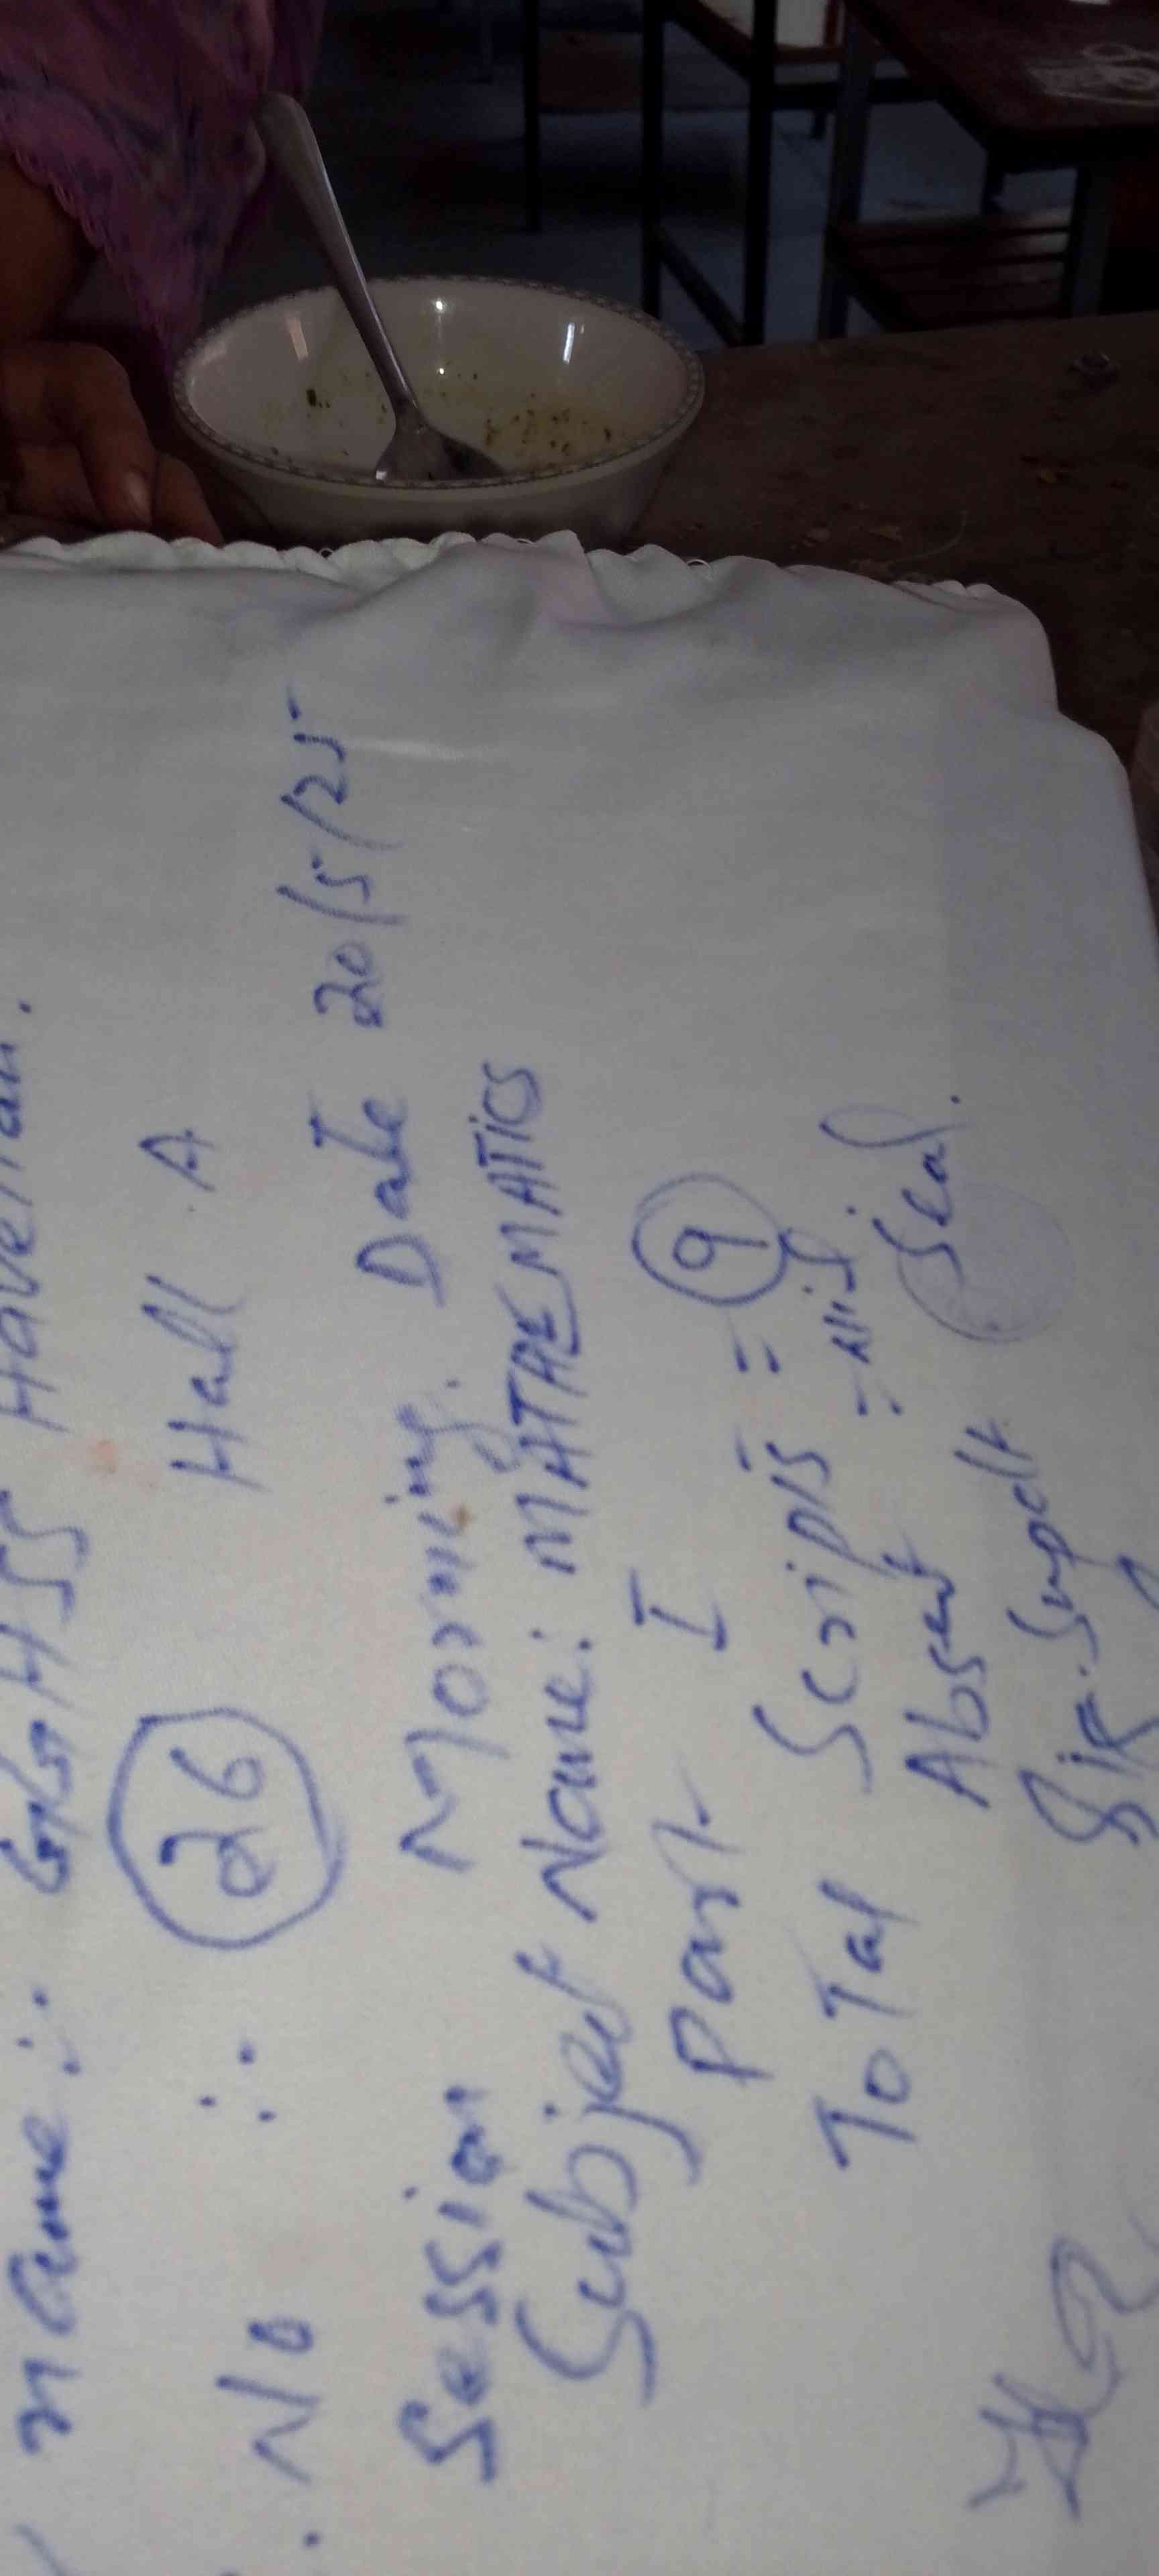 name :. GGHSS Havelian.
. No :. 26 Hall A
Session Morning. Date 20/5/25
Subject Name: MATHEMATICS
Part- I
Total Scripts = 9
Absent = Nil
Sig. Supdt Seal.